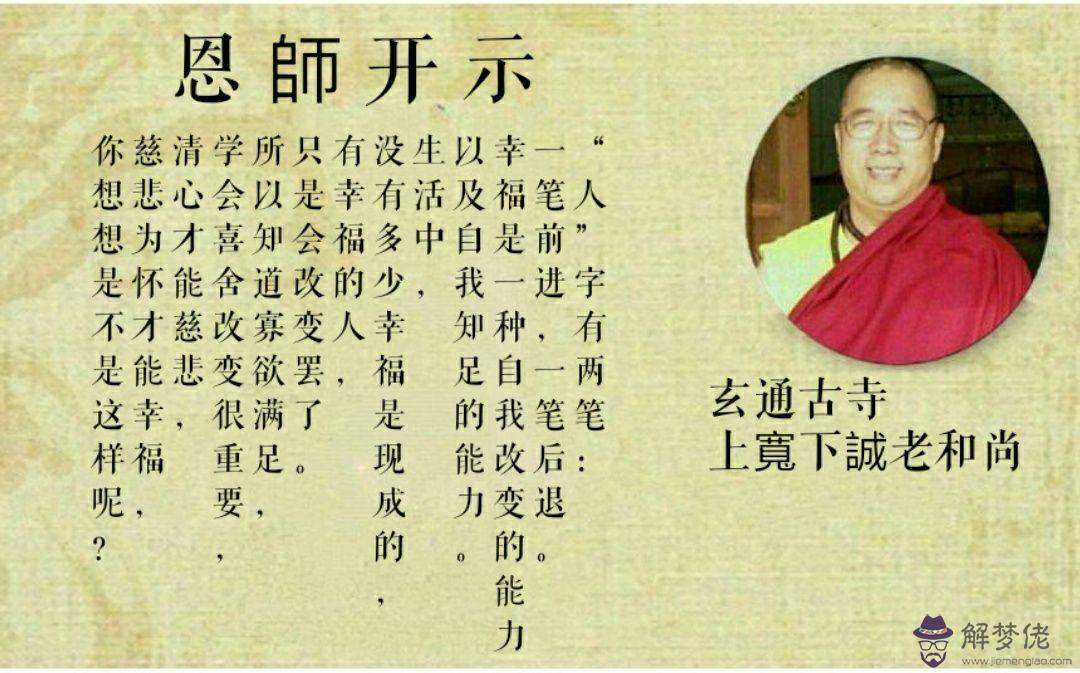 恩師开示
“人”字有两笔：
一笔前进，一笔后退。
幸福是一种自我改变的能力
以及自我知足的能力。
生活中，
没有多少幸福是现成的，
有幸福的人，
只是会改变罢了。
所以知道寡欲满足，
学会喜舍改变很重要，
清心才能慈悲，
慈悲为怀才能幸福
你想想是不是这样呢，?
玄通古寺
上寬下誠老和尚
解梦佬
www.jiemenglao.com